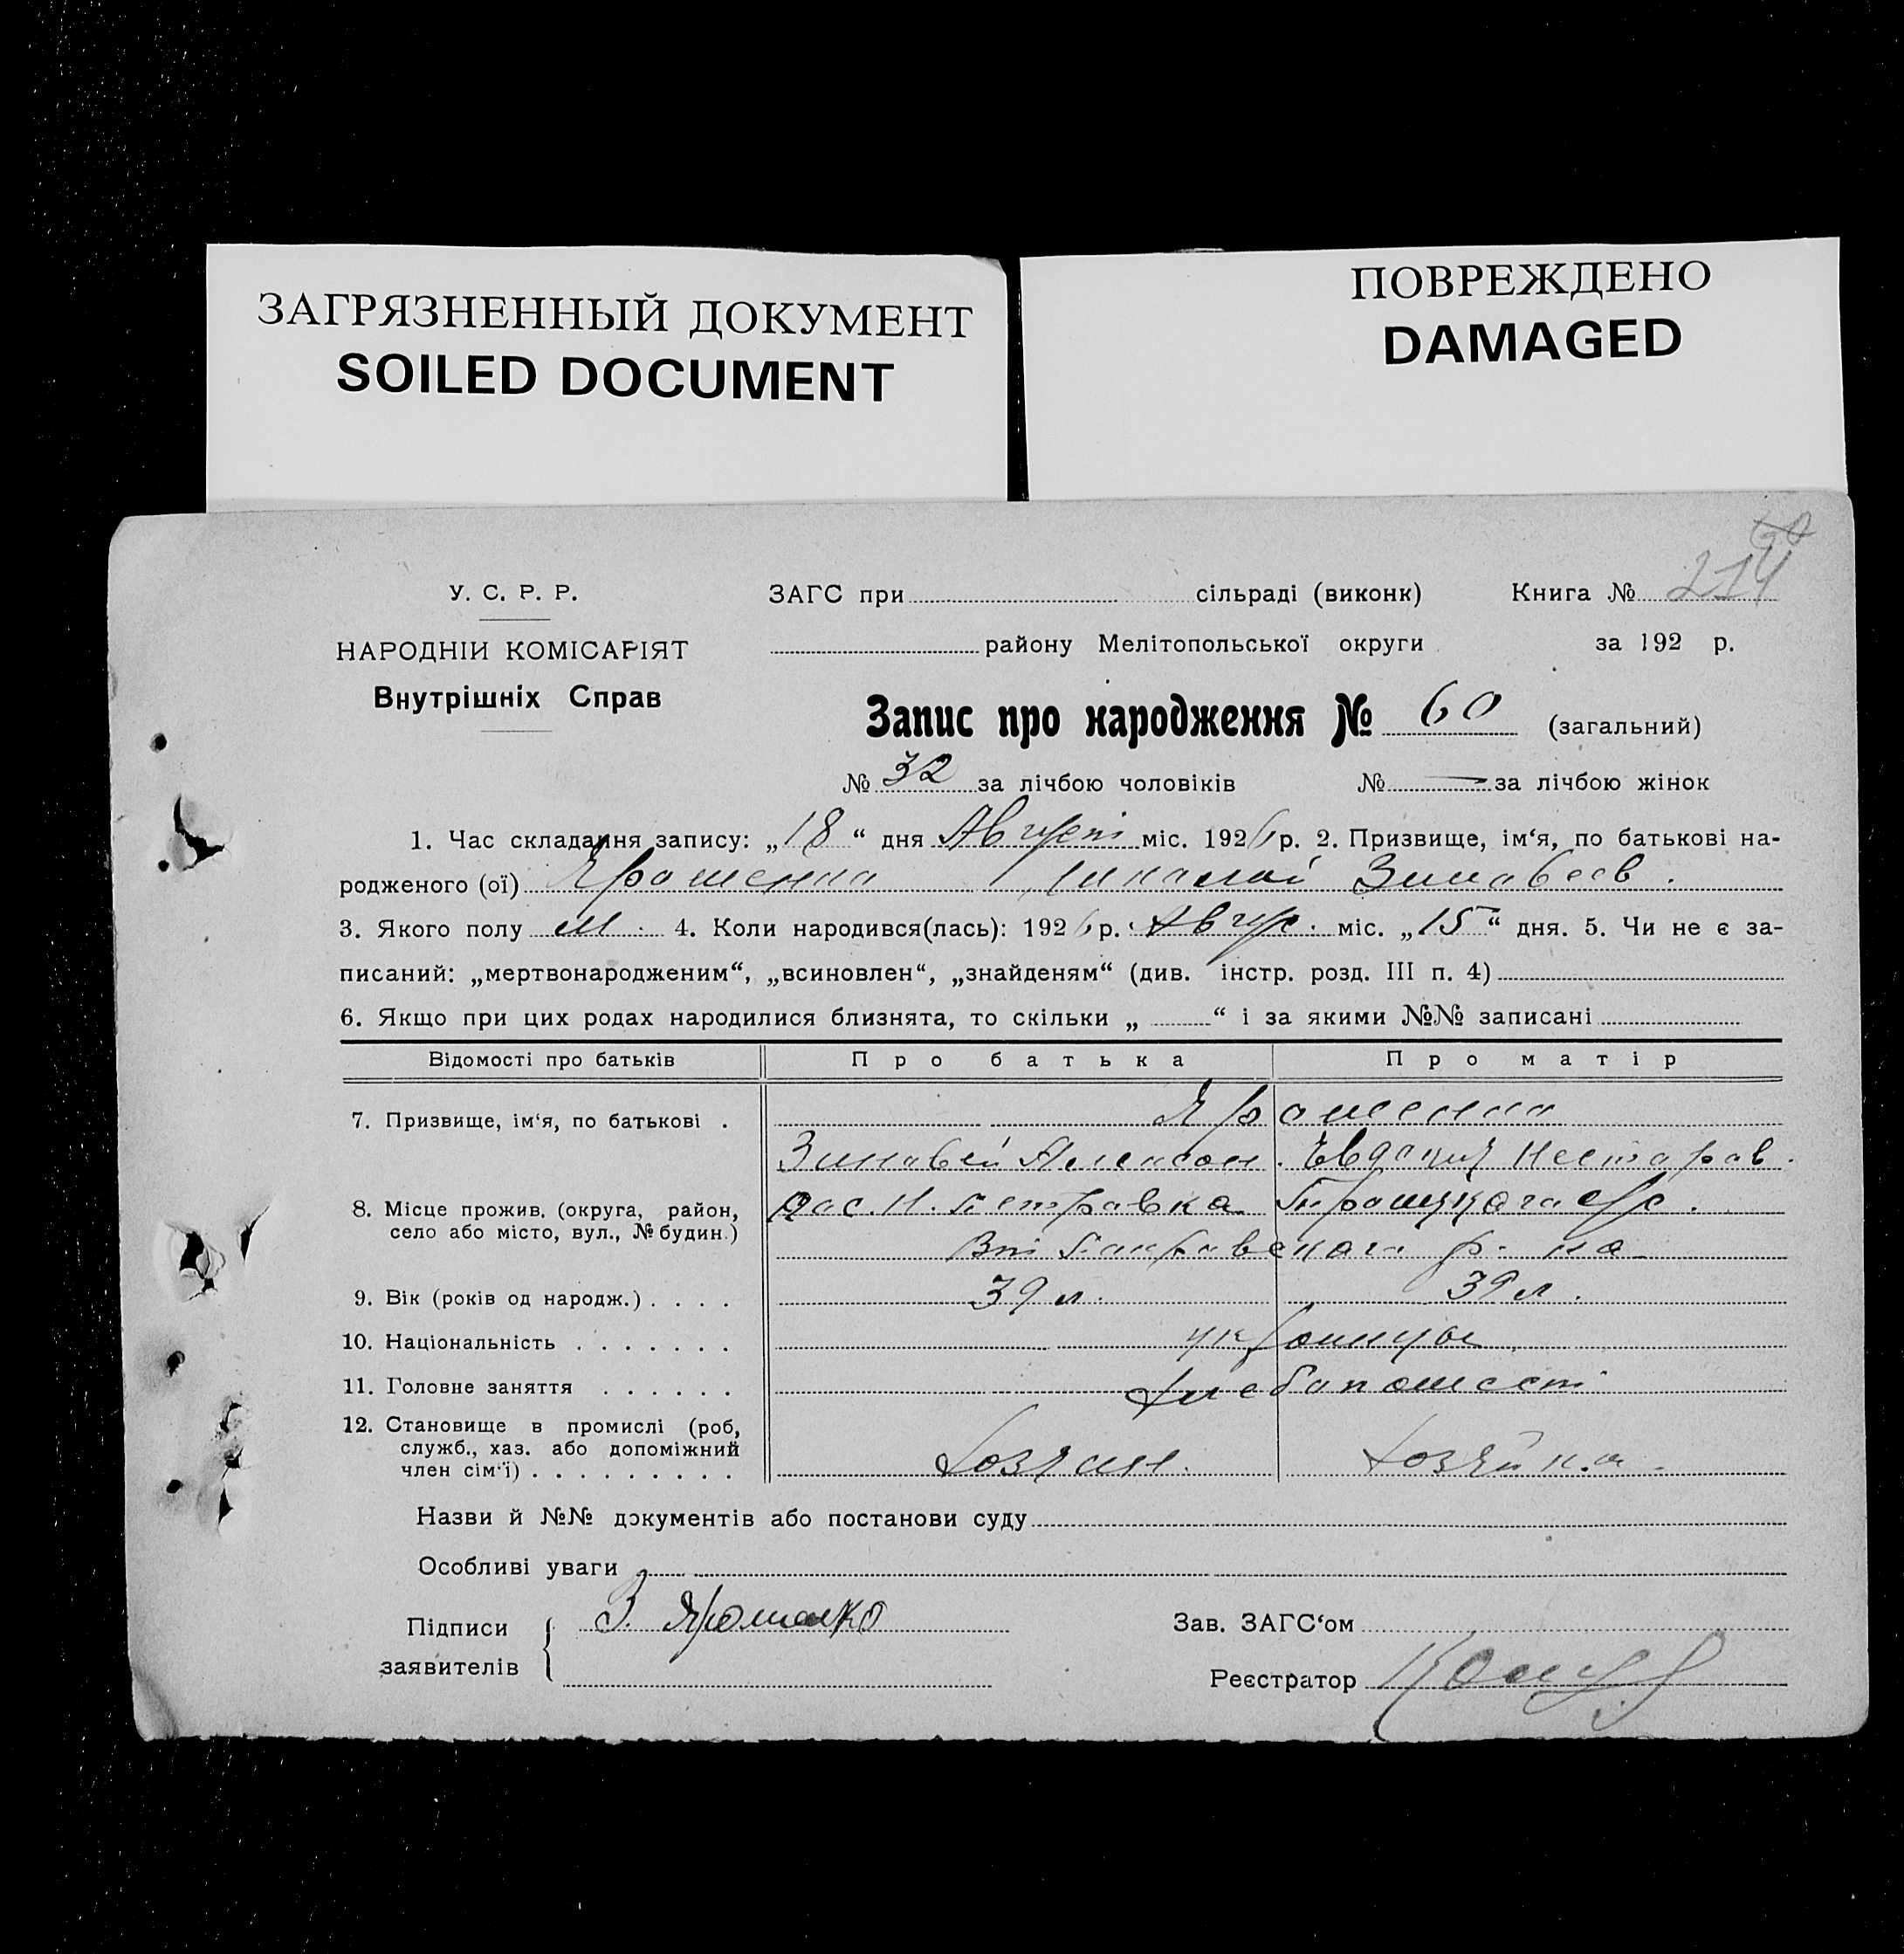 ЗАГРЯЗНЕННЫЙ ДОКУМЕНТ
SOILED DOCUMENT
ПОВРЕЖДЕНО
DAMAGED
У. С. Р. Р.
НАРОДНІЙ КОМІСАРІЯТ
Внутрішніх Справ
60
ЗАГС при сільраді (виконк) Книга № 214
району Мелітопольської округи за 192 р.
Запис про народження № 60 (загальний)
№ 32 за лічбою чоловіків № — за лічбою жінок
1. Час складання запису: „18“ дня Август міс. 1926 р. 2. Призвище, ім‘я, по батькові на-
родженого (ої) Ярошенко Николай Зиновеев.
3. Якого полу м. 4. Коли народився(лась): 1926 р. Авгус. міс. „15“ дня. 5. Чи не є за-
писаний: „мертвонародженим“, „всиновлен“, „знайденям“ (див. інстр. розд. III п. 4)
6. Якщо при цих родах народилися близнята, то скільки „ “ і за якими №№ записані
Відомості про батьків Про батька Про матір
7. Призвище, ім‘я, по батькові . Ярошенко
Зиновей Алексан. Евдокия Несторов.
8. Місце прожив. (округа, район, село або місто, вул., № будин.) пос. Н. Петровка
р-на
9. Вік (років од народж.) . . . . 39 л. 39 л.
10. Національність . . . . . . . украинцы
11. Головне заняття . . . . . . хлебопашест
12. Становище в промислі (роб, служб., хаз. або допоміжний член сім‘ї) . . . . . . . . . хозяин. хозяйка.
Назви й №№ документів або постанови суду
Особливі уваги
Підписи заявителів { З. Ярошенко
Зав. ЗАГС‘ом
Реєстратор